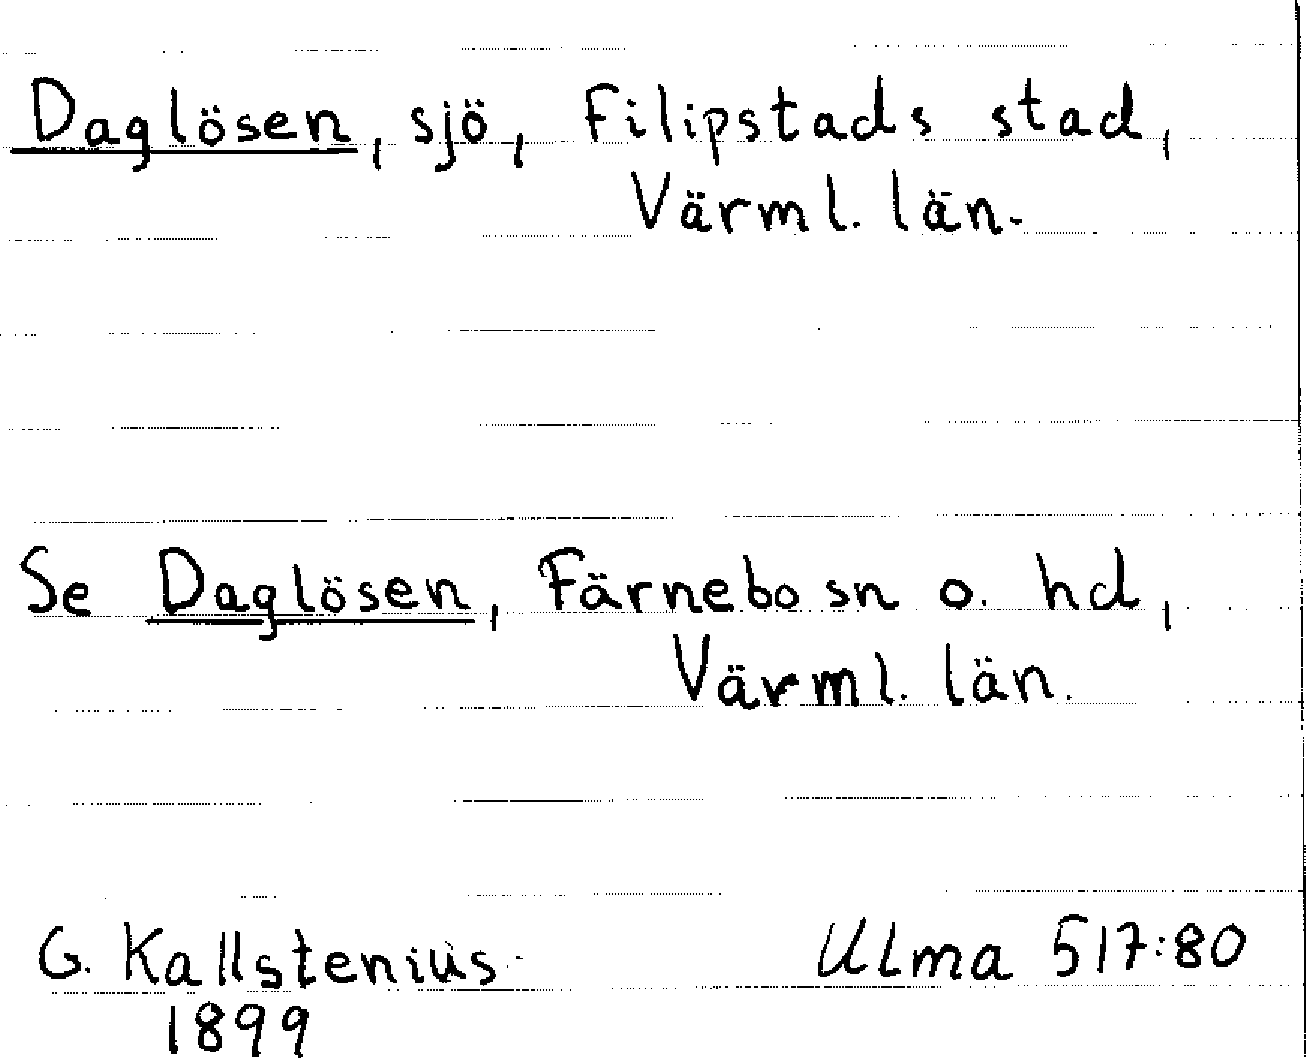 Daglösen, sjö, Filipstads stad,
Värml. län.
Se Daglösen, Färnebo sn o. hd,
Värml. län.
G. Kallstenius Ulma 517:80
1899